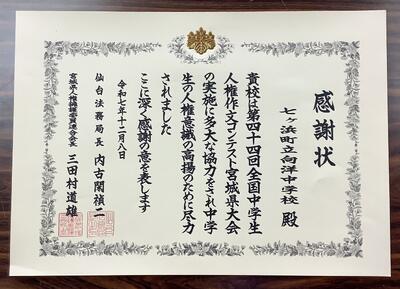 感謝状
七ヶ浜町立向洋中学校 殿
貴校は第四十四回全国中学生
人権作文コンテスト宮城県大会
の実施に多大な協力をされ中学
生の人権意識の高揚のために尽力
されました
ここに深く感謝の意を表します
令和七年十二月八日
仙台法務局長 内古閑禎二
宮城県人権擁護委員連合会長 三田村道雄